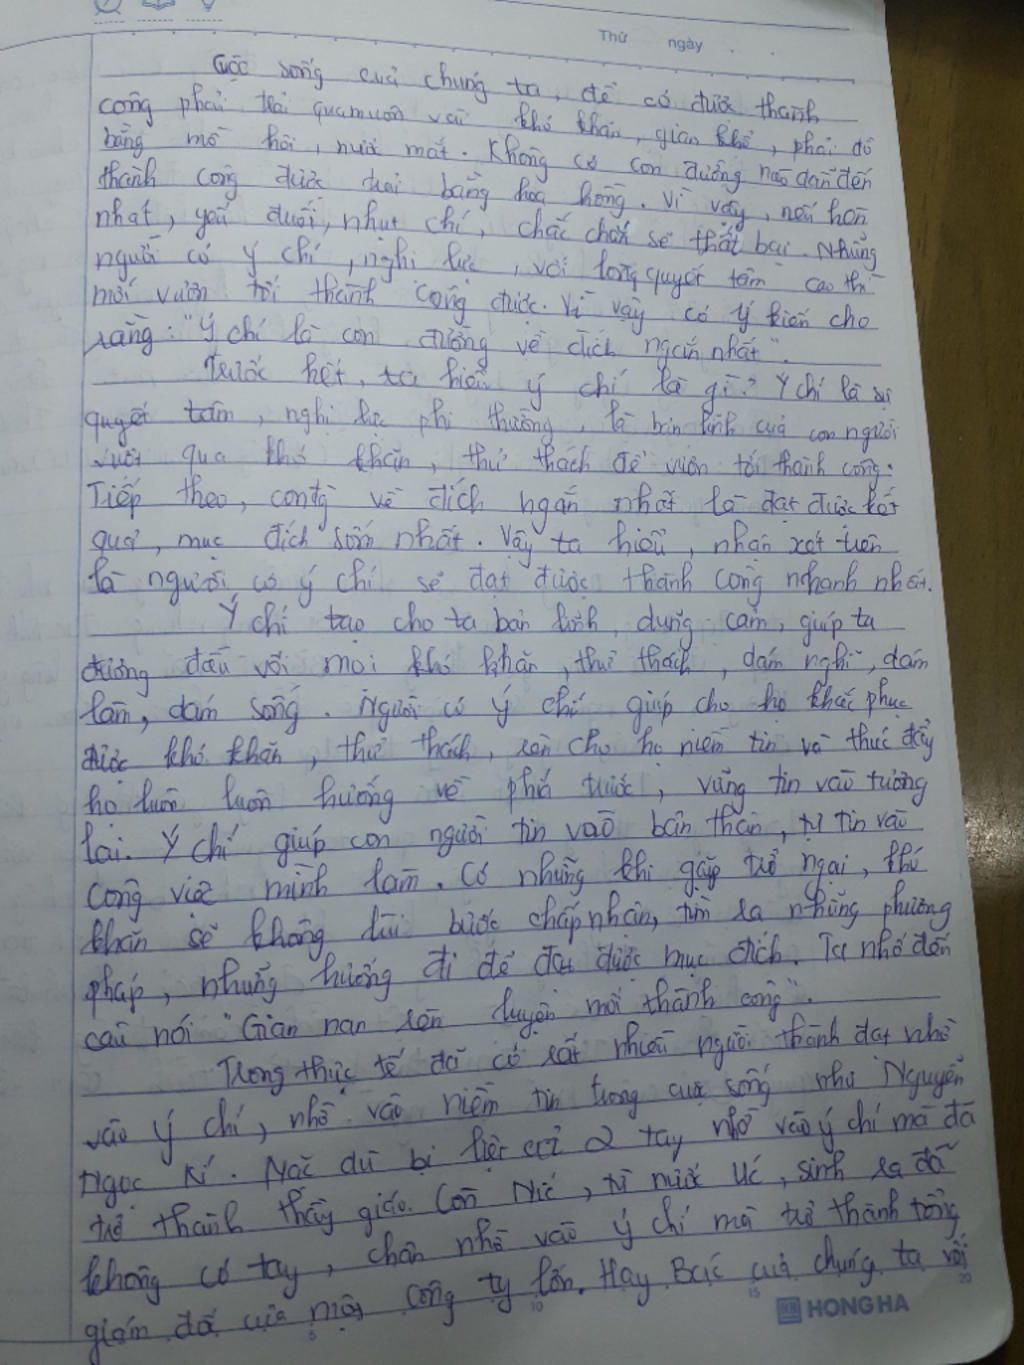 Thứ ngày
Cuộc sống của chúng ta, để có được thành
công phải trải qua muôn vàn khó khăn, gian khổ, phải đổ
bằng mồ hôi, nước mắt. Không có con đường nào dẫn đến
thành công được trải bằng hoa hồng. Vì vậy, nếu hèn
nhát, yếu đuối, nhụt chí, chắc chắn sẽ thất bại. Những
người có ý chí, nghị lực, với lòng quyết tâm cao thì
mới vươn tới thành công được. Vì vậy có ý kiến cho
rằng: "Ý chí là con đường về đích ngắn nhất".
Trước hết, ta hiểu ý chí là gì? Ý chí là sự
quyết tâm, nghị lực phi thường, là bản lĩnh của con người
vượt qua khó khăn, thử thách để vươn tới thành công.
Tiếp theo, conđg về đích ngắn nhất là đạt được kết
quả, mục đích sớm nhất. Vậy ta hiểu, nhận xét trên
là người có ý chí sẽ đạt được thành công nhanh nhất.
Ý chí tạo cho ta bản lĩnh, dũng cảm, giúp ta
đương đầu với mọi khó khăn, thử thách, dám nghĩ, dám
làm, dám sống. Người có ý chí giúp cho họ khắc phục
được khó khăn, thử thách, rèn cho họ niềm tin và thúc đẩy
họ luôn luôn hướng về phía trước, vững tin vào tương
lai. Ý chí giúp con người tin vào bản thân, tự tin vào
công việc mình làm. Có những khi gặp trở ngại, khó
khăn sẽ không lùi bước chấp nhận, tìm ra những phương
pháp, những hướng đi để đạt được mục đích. Ta nhớ đến
câu nói "Gian nan rèn luyện mới thành công".
Trong thực tế đã có rất nhiều người thành đạt nhờ
vào ý chí, nhờ vào niềm tin trong cuộc sống như Nguyễn
Ngọc Kí. Mặc dù bị liệt cả 2 tay nhờ vào ý chí mà đã
trở thành thầy giáo. Còn Níc, từ nước Úc, sinh ra đã
không có tay, chân nhờ vào ý chí mà trở thành tổng
giám đốc của một công ty lớn. Hay Bác của chúng ta với
5 10 15 20
HONG HA